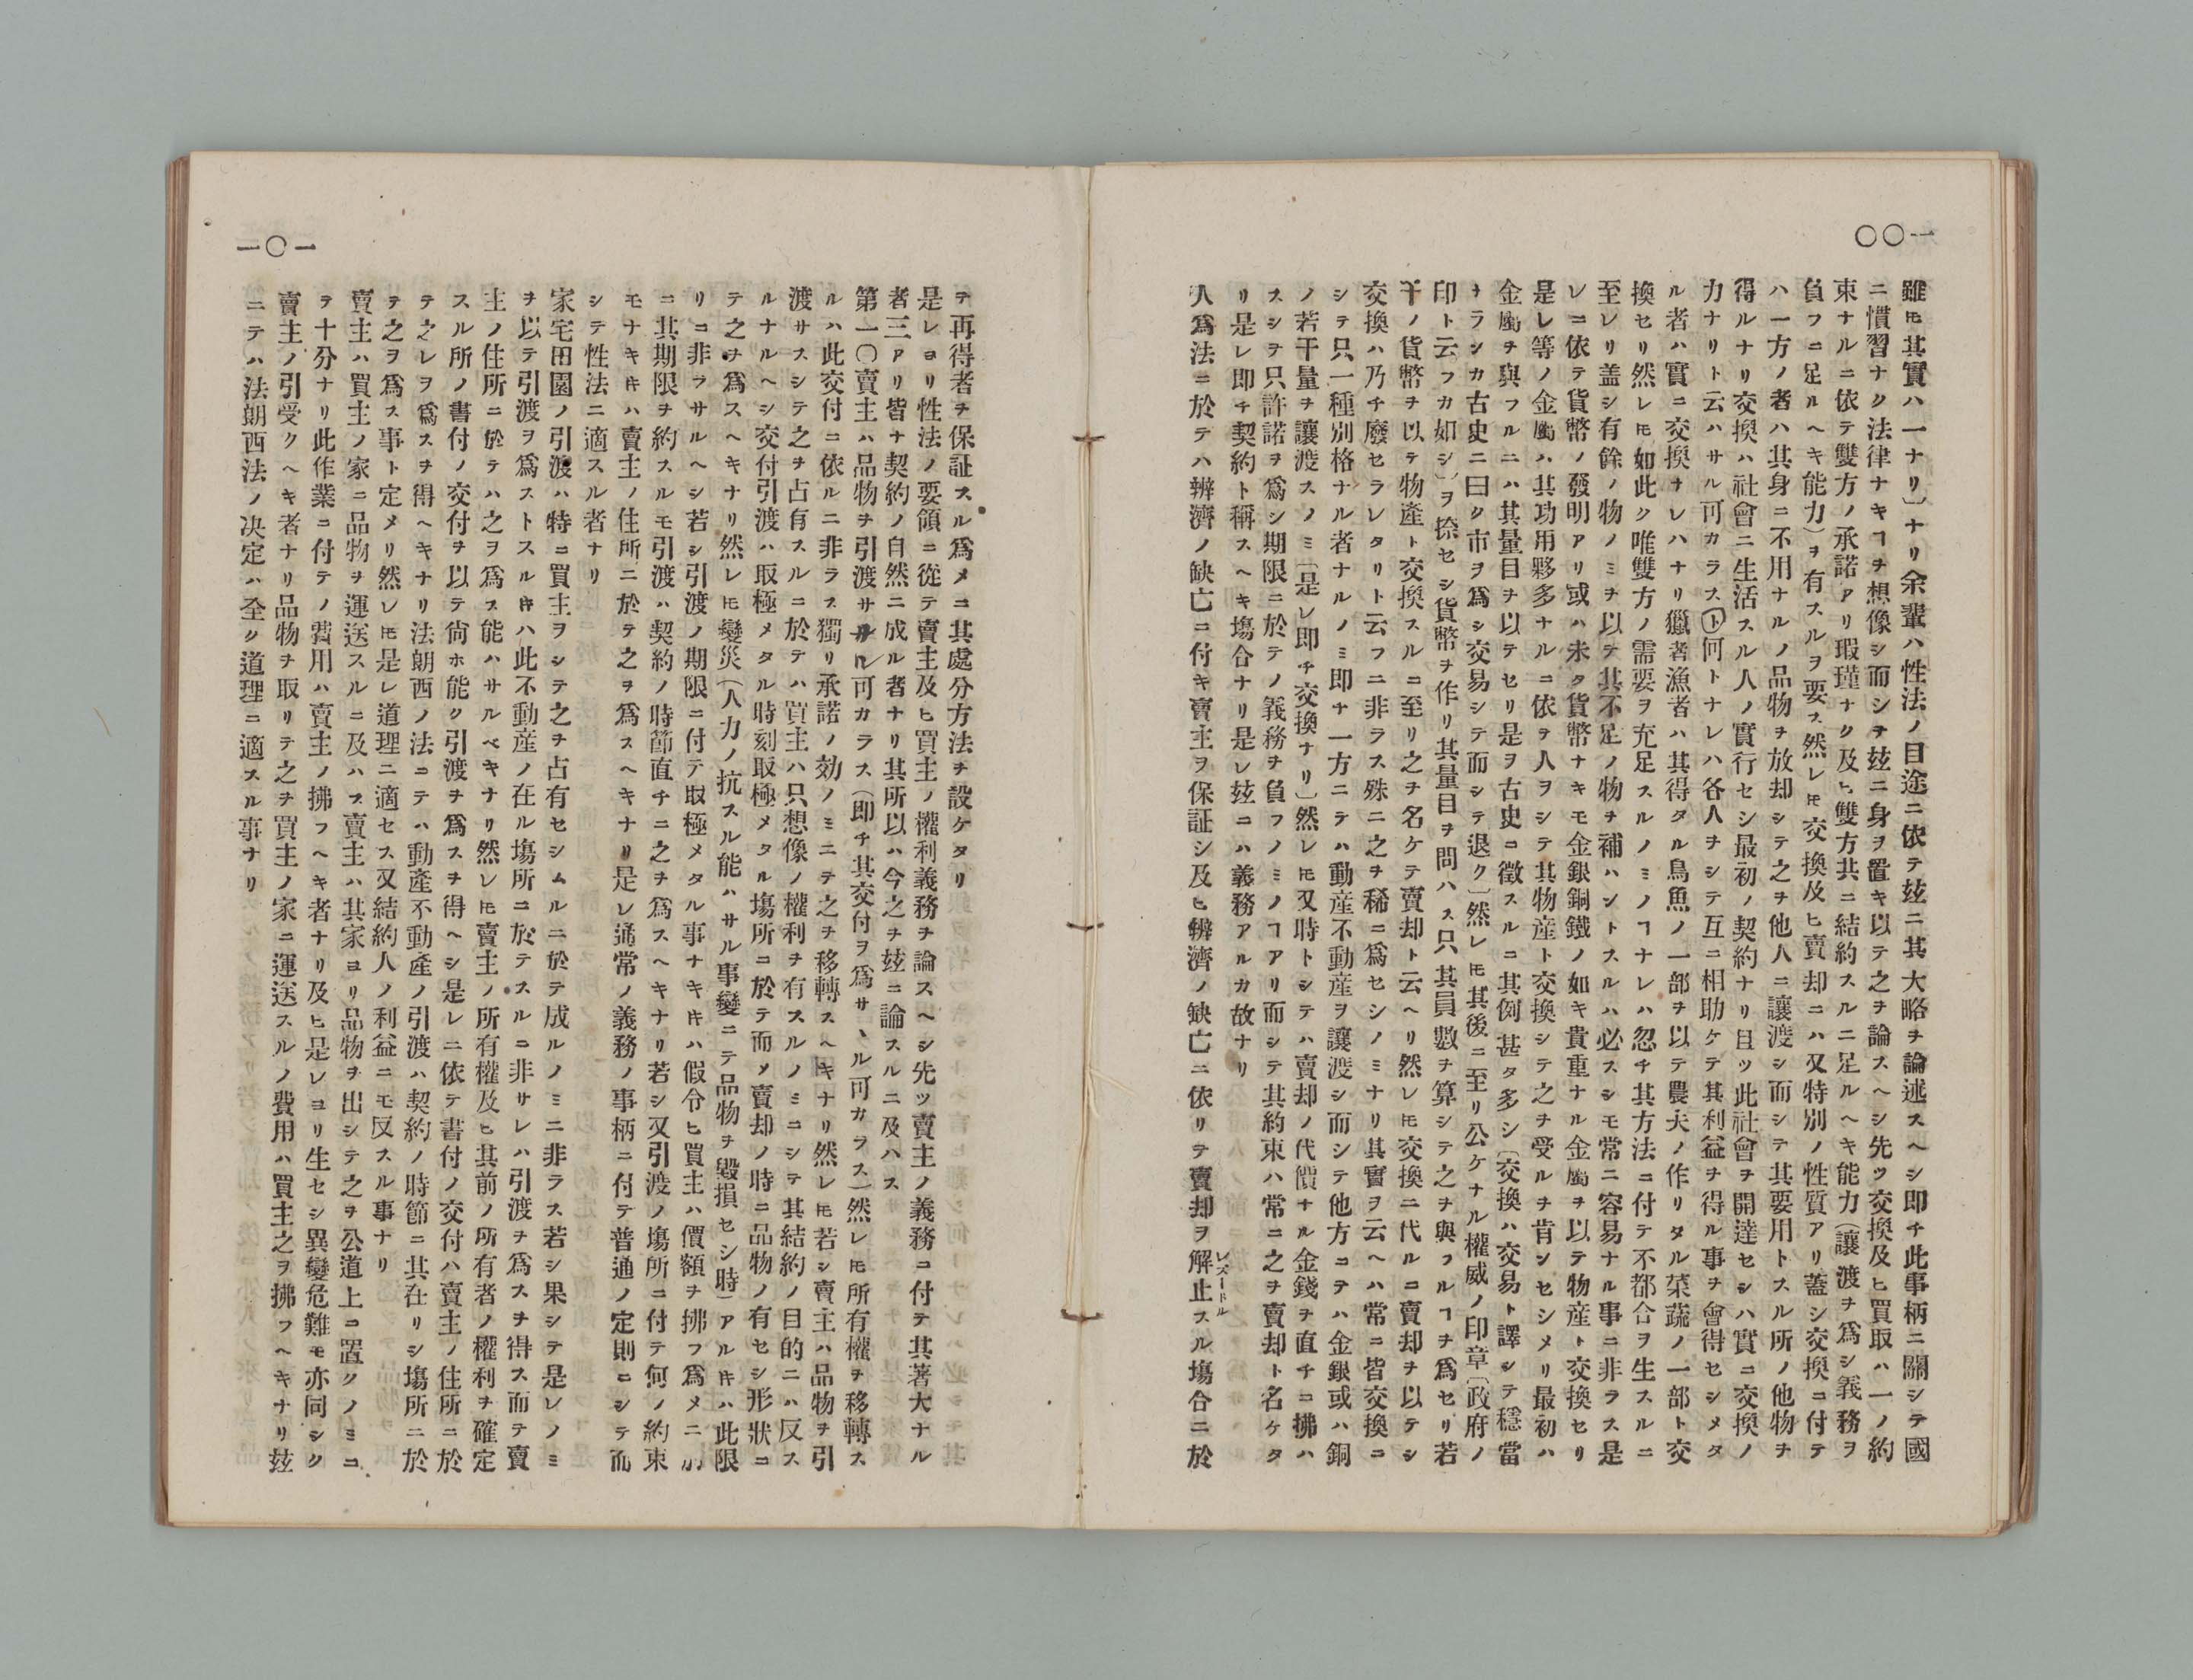 一〇〇
雖𪜈其實ハ一ナリ〕ナリ余輩ハ性法ノ目途ニ依テ玆ニ其大略ヲ論述スヘシ即チ此事柄ニ關シテ國
ニ慣習ナク法律ナキヿヲ想像シ而シテ玆ニ身ヲ置キ以テ之ヲ論スヘシ先ツ交換及ヒ買取ハ一ノ約
束ナルニ依テ雙方ノ承諾アリ瑕瑾ナク及ヒ雙方共ニ結約スルニ足ルヘキ能力(讓渡ヲ爲シ義務ヲ
負フニ足ルヘキ能力)ヲ有スルヲ要ス然レ𪜈交換及ヒ賣却ニハ又特別ノ性質アリ蓋シ交換ニ付テ
ハ一方ノ者ハ其身ニ不用ナルノ品物ヲ放却シテ之ヲ他人ニ讓渡シ而シテ其要用トスル所ノ他物ヲ
得ルナリ交換ハ社會ニ生活スル人ノ實行セシ最初ノ契約ナリ且ツ此社會ヲ開達セシハ實ニ交換ノ
力ナリト云ハサル可カラスト何トナレハ各人ヲシテ互ニ相助ケテ其利益ヲ得ル事ヲ會得セシメタ
ル者ハ實ニ交換ナレハナリ獵者漁者ハ其得タル鳥魚ノ一部ヲ以テ農夫ノ作リタル菜蔬ノ一部ト交
換セリ然レ𪜈如此ク唯雙方ノ需要ヲ充足スルノミノヿナレハ忽チ其方法ニ付テ不都合ヲ生スルニ
至レリ盖シ有餘ノ物ノミヲ以テ其不足ノ物ヲ補ハントスルハ必スシモ常ニ容易ナル事ニ非ラス是
レニ依テ貨幣ノ發明アリ或ハ未タ貨幣ナキモ金銀銅鐵ノ如キ貴重ナル金屬ヲ以テ物産ト交換セリ
是レ等ノ金屬ハ其功用夥多ナルニ依ヲ人ヲシテ其物産ト交換シテ之ヲ受ルヲ肯ンセシメリ最初ハ
金屬ヲ與フルニハ其量目ヲ以テセリ是ヲ古史ニ徵スルニ其例甚タ多シ〔交換ハ交易ト譯シテ穩當
ナランカ古史ニ曰ク市ヲ爲シ交易シテ而シテ退ク〕然レ𪜈其後ニ至リ公ケナル權威ノ印章〔政府ノ
印ト云フカ如シ〕ヲ捺セシ貨幣ヲ作リ其量目ヲ問ハス只其員數ヲ算シテ之ヲ與フルヿヲ爲セリ若
干ノ貨幣ヲ以テ物產ト交換スルニ至リ之ヲ名ケテ賣却ト云ヘリ然レ𪜈交換ニ代ルニ賣却ヲ以テシ
交換ハ乃チ廢セラレタリト云フニ非ラス殊ニ之ヲ稀ニ爲セシノミナリ其實ヲ云ヘハ常ニ皆交換ニ
シテ只一種別格ナル者ナルノミ即チ一方ニテハ動産不動産ヲ讓渡シ而シテ他方ニテハ金銀或ハ銅
ノ若干量ヲ讓渡スノミ〔是レ即チ交換ナリ〕然レ𪜈又時トシテハ賣却ノ代價ナル金錢ヲ直チニ拂ハ
スシテ只許諾ヲ爲シ期限ニ於テノ義務ヲ負フノミノヿアリ而シテ其約束ハ常ニ之ヲ賣却ト名ケタ
リ是レ即チ契約ト稱スヘキ塲合ナリ是レ玆ニハ義務アルカ故ナリ
人爲法ニ於テハ辨濟ノ缺亡ニ付キ賣主ヲ保証シ及ヒ辨濟ノ缺亡ニ依リテ賣却ヲ解止スル塲合ニ於
レズードル
一〇一
テ再得者ヲ保証スル爲メニ其處分方法ヲ設ケタリ
是レヨリ性法ノ要領ニ從テ賣主及ヒ買主ノ權利義務ヲ論スヘシ先ツ賣主ノ義務ニ付テ其著大ナル
者三アリ皆ナ契約ノ自然ニ成ル者ナリ其所以ハ今之ヲ玆ニ論スルニ及ハス
第一〇賣主ハ品物ヲ引渡サル可カラス(即チ其交付ヲ爲サヽル可カラス)然レ𪜈所有權ヲ移轉ス
ルハ此交付ニ依ルニ非ラス獨リ承諾ノ効ノミニテ之ヲ移轉スヘキナリ然レ𪜈若シ賣主ハ品物ヲ引
渡サスシテ之ヲ占有スルニ於テハ買主ハ只想像ノ權利ヲ有スルノミニシテ其結約ノ目的ニハ反ス
ルナルヘシ交付引渡ハ取極メタル時刻取極メタル塲所ニ於テ而ソ賣却ノ時ニ品物ノ有セシ形狀ニ
テ之ヲ爲スヘキナリ然レ𪜈變災(人力ノ抗スル能ハサル事變ニテ品物ヲ毀損セシ時)アルキハ此限
リニ非ラサルヘシ若シ引渡ノ期限ニ付テ取極メタル事ナキキハ假令ヒ買主ハ價額ヲ拂フ爲メニ別
ニ其期限ヲ約スルモ引渡ハ契約ノ時節直チニ之ヲ爲スヘキナリ若シ又引渡ノ塲所ニ付テ何ノ約束
モナキキハ賣主ノ住所ニ於テ之ヲ爲スヘキナリ是レ通常ノ義務ノ事柄ニ付テ普通ノ定則ニシテ而
シテ性法ニ適スル者ナリ
家宅田園ノ引渡ハ特ニ買主ヲシテ之ヲ占有セシムルニ於テ成ルノミニ非ラス若シ果シテ是レノミ
ヲ以テ引渡ヲ爲ストスルキハ此不動産ノ在ル塲所ニ於テスルニ非サレハ引渡ヲ爲スヲ得ス而テ賣
主ノ住所ニ於テハ之ヲ爲ス能ハサルベキナリ然レ𪜈賣主ノ所有權及ヒ其前ノ所有者ノ權利ヲ確定
スル所ノ書付ノ交付ヲ以テ尙ホ能ク引渡ヲ爲スヲ得ヘシ是レニ依テ書付ノ交付ハ賣主ノ住所ニ於
テ之レヲ爲スヲ得ヘキナリ法朗西ノ法ニテハ動産不動產ノ引渡ハ契約ノ時節ニ其在リシ塲所ニ於
テ之ヲ爲ス事ト定メリ然レ𪜈是レ道理ニ適セス又結約人ノ利益ニモ反スル事ナリ
賣主ハ買主ノ家ニ品物ヲ運送スルニ及ハス賣主ハ其家ヨリ品物ヲ出シテ之ヲ公道上ニ置クノミニ
テ十分ナリ此作業ニ付テノ費用ハ賣主ノ拂フヘキ者ナリ及ヒ是レヨリ生セシ異變危難モ亦同シク
賣主ノ引受クヘキ者ナリ品物ヲ取リテ之ヲ買主ノ家ニ運送スルノ費用ハ買主之ヲ拂フヘキナリ玆
ニテハ法朗西法ノ決定ハ全ク道理ニ適スル事ナリ